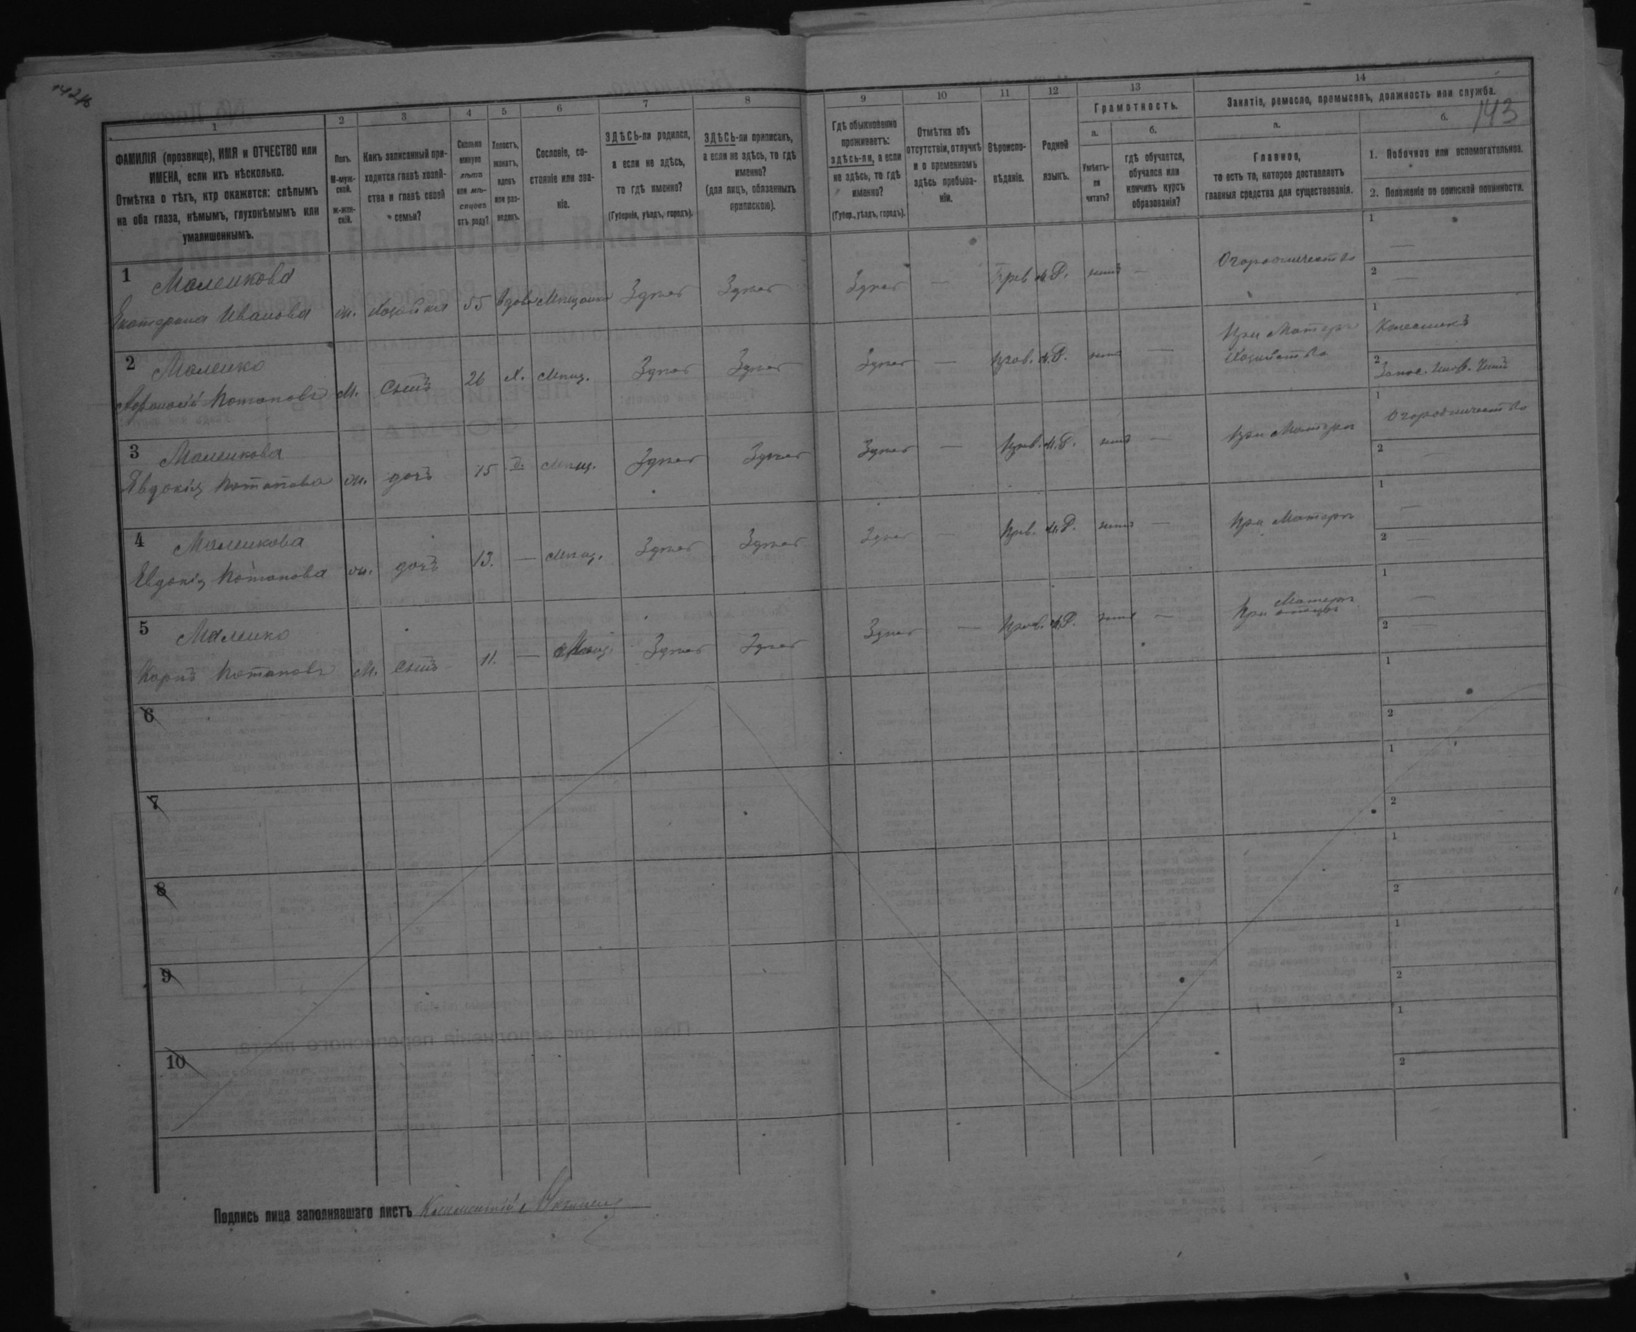 143
1 2 3 4 5 6 7 8 9 10 11 12 13 14
ФАМИЛІЯ (прозвище), ИМЯ и ОТЧЕСТВО или
ИМЕНА, если ихъ нѣсколько.
Отмѣтка о тѣхъ, кто окажется: слѣпымъ
на оба глаза, нѣмымъ, глухонѣмымъ или
умалишеннымъ.
Полъ.
М-муж-
ской.
Ж-жен-
скій.
Какъ записанный при-
ходится главѣ хозяй-
ства и главѣ своей
семьи?
Сколько
минуло
лѣтъ
или мѣ-
сяцевъ
отъ роду?
Холостъ,
женатъ,
вдовъ
или раз-
веденъ.
Сословіе, со-
стояніе или зва-
ніе.
ЗДѢСЬ-ли родился,
а если не здѣсь,
то гдѣ именно?
(Губернія, уѣздъ, городъ).
ЗДѢСЬ-ли приписанъ,
а если не здѣсь, то гдѣ
именно?
(для лицъ, обязанныхъ
припискою).
Гдѣ обыкновенно
проживаетъ:
здѣсь-ли, а если
не здѣсь, то гдѣ
именно?
(Губер., уѣздъ, городъ).
Отмѣтка объ
отсутствіи, отлучкѣ
и о временномъ
здѣсь пребыва-
ніи.
Вѣроиспо-
вѣданіе.
Родной
языкъ.
Грамотность.
а.
Умѣетъ-
ли
читать?
б.
гдѣ обучается,
обучался или
кончилъ курсъ
образованія?
Занятіе, ремесло, промыселъ, должность или служба.
а.
Главное,
то есть то, которое доставляетъ
главныя средства для существованія.
б.
1. Побочное или вспомогательное.
2. Положеніе по воинской повинности.
1 Маленкова
Екатерина Иванова ж. хозяйка 55 вдова Мѣщанка Здѣсь Здѣсь Здѣсь — Прав. М.Р. нѣтъ — Огородничество
1 —
2 —
2 Маленко
Потаповъ М. сынъ 26 х. Мѣщ. Здѣсь Здѣсь Здѣсь — Прав. М.Р. нѣтъ — При Матери
1
2
3 Маленкова
Евдокія Потапова ж. дочь 15 Мѣщ. Здѣсь Здѣсь Здѣсь — Прав. М.Р. нѣтъ — При Матери
1 Огородничество
2 —
4 Маленкова
Евдокія Потапова ж. дочь 13. — Мѣщ. Здѣсь Здѣсь Здѣсь — Прав. М.Р. нѣтъ — При Матери
1 —
2 —
5 Маленко
Карпъ Потаповъ М. сынъ 11. — Мѣщ. Здѣсь Здѣсь Здѣсь — Прав. М.Р. нѣтъ — При Матери
1 —
2 —
6
1
2
7
1
2
8
1
2
9
1
2
10
1
2
Подпись лица заполнявшаго листъ